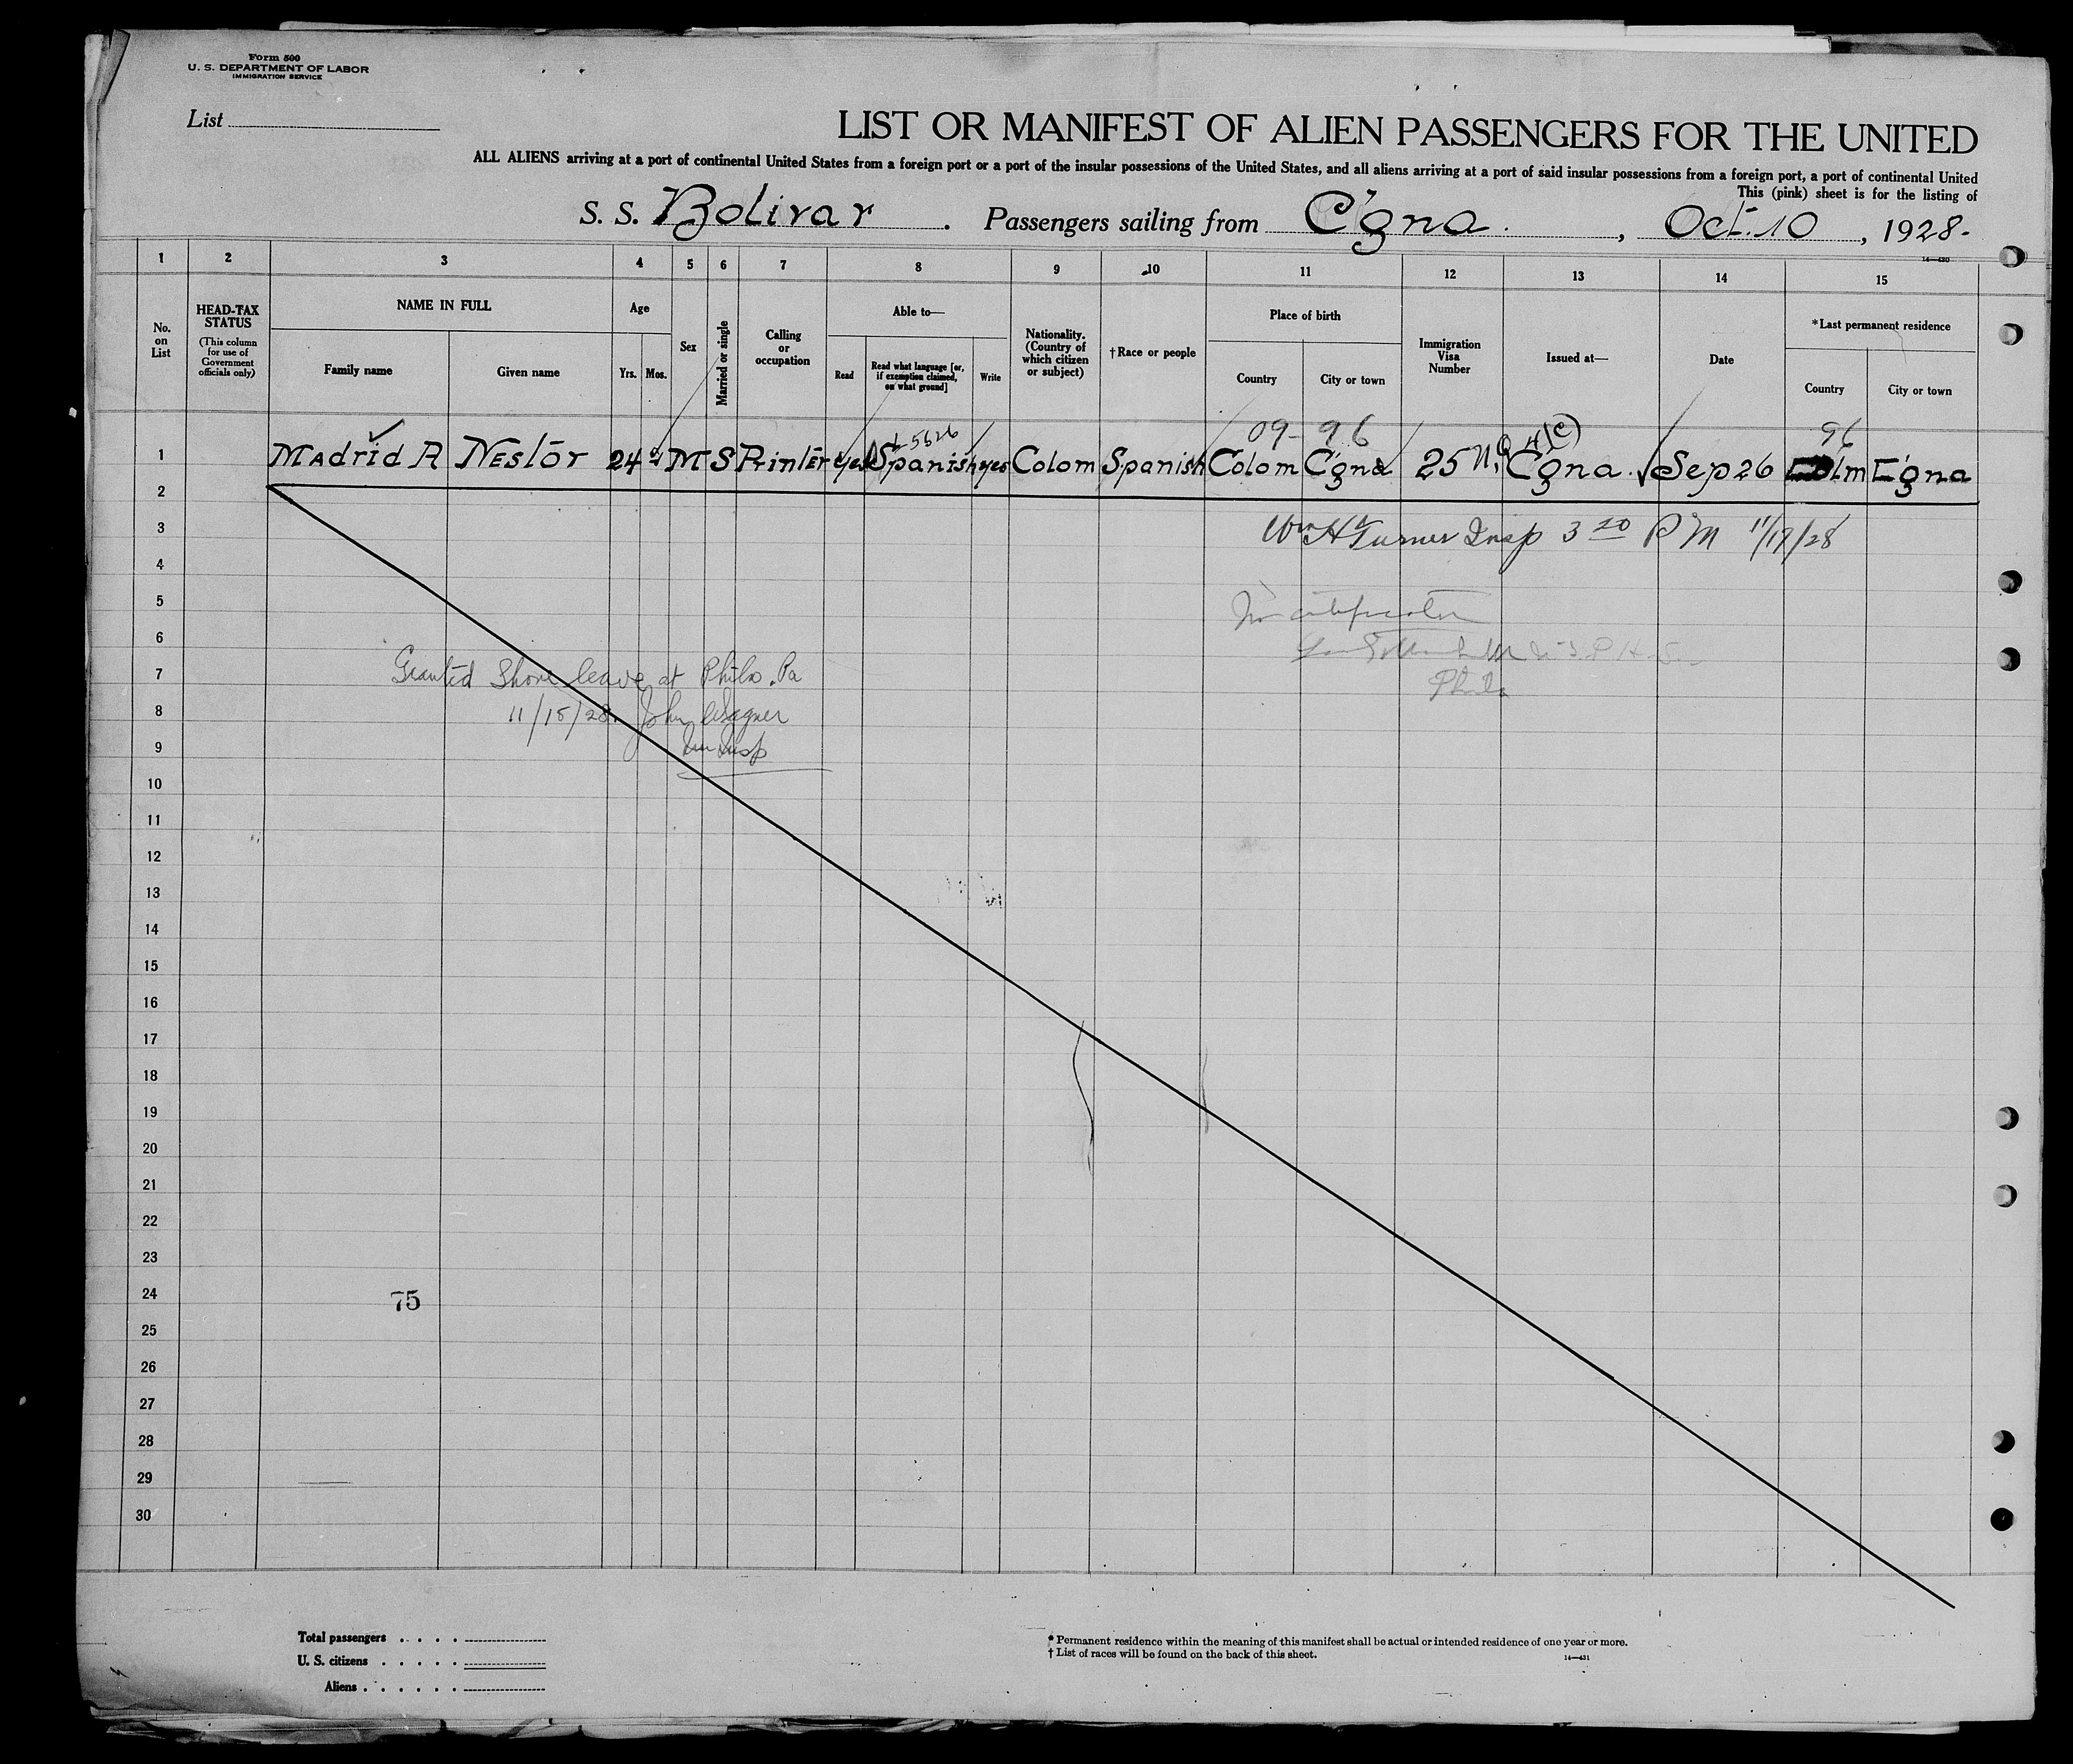 Form 500
U. S. DEPARTMENT OF LABOR
IMMIGRATION SERVICE
List
LIST OR MANIFEST OF ALIEN PASSENGERS FOR THE UNITED
ALL ALIENS arriving at a port of continental United States from a foreign port or a port of the insular possessions of the United States, and all aliens arriving at a port of said insular possessions from a foreign port, a port of continental United
This (pink) sheet is for the listing of
S. S. Bolivar. Passengers sailing from C'gna. , Oct. 10, 1928.
14—430
1 2 3 4 5 6 7 8 9 10 11 12 13 14 15
No. on List
HEAD-TAX STATUS
(This column for use of Government officials only)
NAME IN FULL
Family name
Given name
Age
Yrs. Mos.
Sex
Married or single
Calling or occupation
Able to—
Read
Read what language [or, if exemption claimed, on what ground]
Write
Nationality. (Country of which citizen or subject)
†Race or people
Place of birth
Country
City or town
Immigration Visa Number
Issued at—
Date
*Last permanent residence
Country
City or town
09- 96 4(c) 96
1 Madrid A Nestor 24 M S Printer yes Spanish yes Colom Spanish Colom C'gna 25 C'gna. Sep 26 Colm C'gna
2
3 Wm H Turner Insp 3 20 PM 11/19/28
4
5
6
7 Granted Shore leave at Phila. Pa
8 11/15/28. John Wagner
9 Im Insp
Phila
10
11
12
13
14
15
16
17
18
19
20
21
22
23
24
75
25
26
27
28
29
30
Total passengers . . . .
U. S. citizens . . . . .
Aliens . . . . . .
* Permanent residence within the meaning of this manifest shall be actual or intended residence of one year or more.
† List of races will be found on the back of this sheet.
14—431